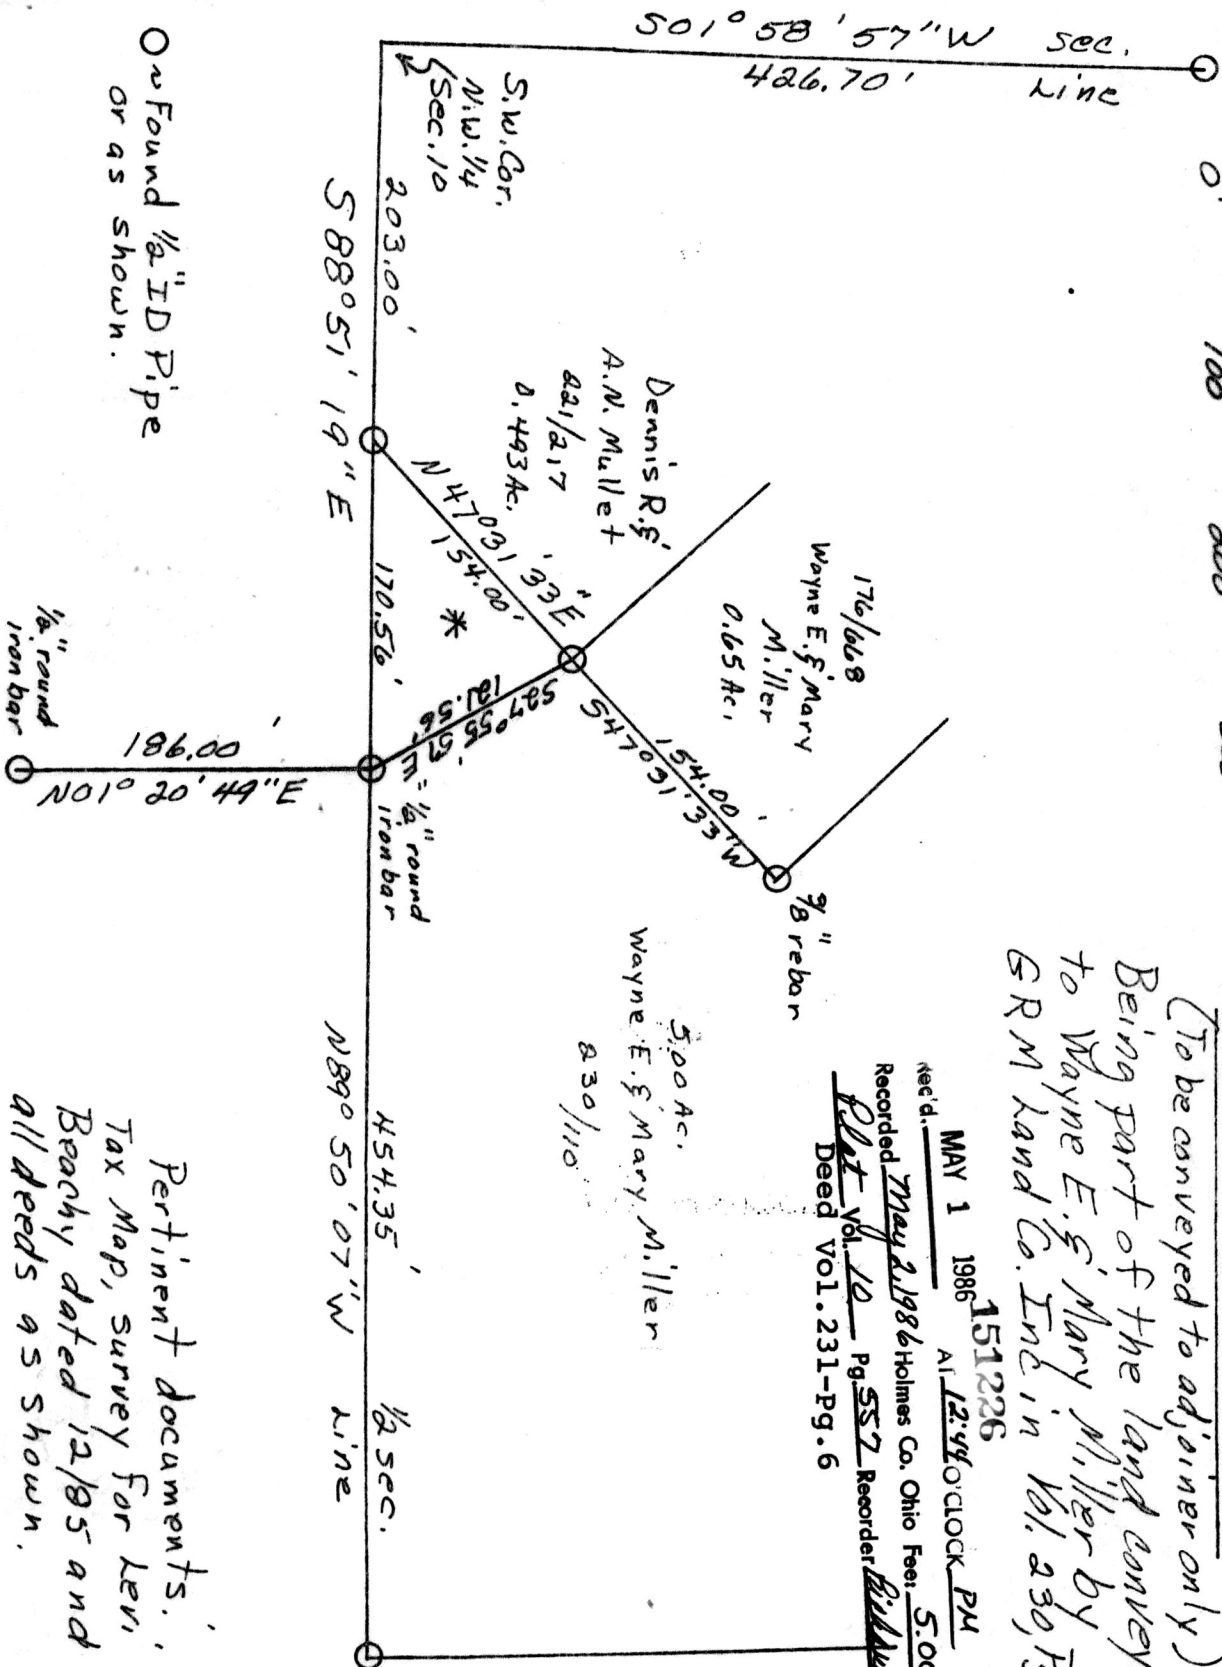 S01° 58' 57"W Sec.
426.70' Line
0' 100 200
S.W. Cor.
N.W. 1/4
Sec. 10
203.00'
S 88° 51' 19" E
~ Found 1/2" ID Pipe
or as shown.
Dennis R. &
A.N. Mullet
221/217
0.493 Ac.
N 47° 31' 33"E
154.00'
*
170.56'
176/668
Wayne E. & Mary
Miller
0.65 Ac.
154.00'
S47° 31' 33"W
S27° 55' 57"E
121.56'
1/2" round
iron bar
5/8" rebar
186.00'
N01° 20' 49"E
1/2" round
iron bar
5.00 Ac.
Wayne E. & Mary Miller
230/110
454.35' 1/2 Sec.
N89° 50' 07"W Line
(To be conveyed to adjoiner only)
Being part of the land convey
to Wayne E. & Mary Miller by
GRM Land Co. Inc in Vol. 230,
151226
Rec'd. MAY 1 1986 At 12:44 O'CLOCK PM
Recorded May 2, 1986 Holmes Co. Ohio Fee: 5.00
Plat Vol. 10 Pg. 557 Recorder
Deed Vol.231-Pg.6
Pertinent documents:
Tax Map, survey for Levi
Beachy dated 12/85 and
all deeds as shown.